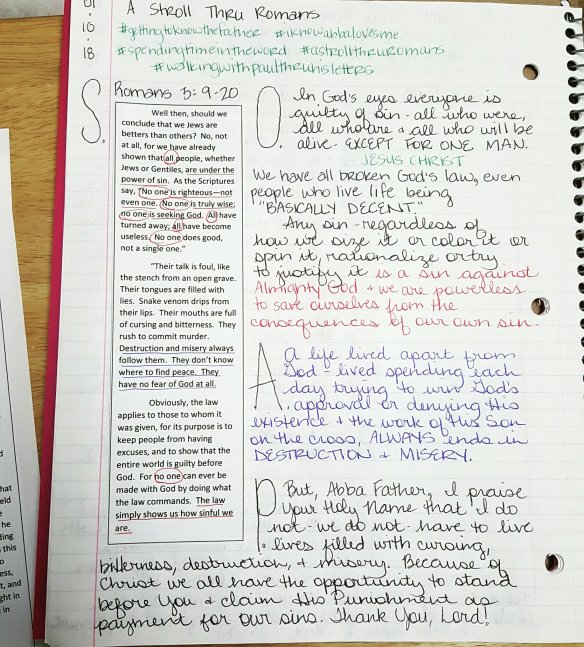 01
10
18
A Stroll Thru Romans
#gettingtoknowthefather #iknowabbalovesme
#spendingtimeintheword #astrollthruromans
#walkingwithpaulthruhisletters
S.
Romans 3:9-20
Well then, should we
conclude that we Jews are
better than others? No, not
at all, for we have already
shown that all people, whether
Jews or Gentiles, are under the
power of sin. As the Scriptures
say, "No one is righteous—not
even one. No one is truly wise;
no one is seeking God. All have
turned away; all have become
useless. No one does good,
not a single one."
"Their talk is foul, like
the stench from an open grave.
Their tongues are filled with
lies. Snake venom drips from
their lips. Their mouths are full
of cursing and bitterness. They
rush to commit murder.
Destruction and misery always
follow them. They don't know
where to find peace. They
have no fear of God at all.
Obviously, the law
applies to those to whom it
was given, for its purpose is to
keep people from having
excuses, and to show that the
entire world is guilty before
God. For no one can ever be
made with God by doing what
the law commands. The law
simply shows us how sinful we
are.
O.
In God's eyes everyone is
guilty of sin - all who were,
all who are & all who will be
alive - EXCEPT FOR ONE MAN.
JESUS CHRIST
We have all broken God's law, even
people who live life being
"BASICALLY DECENT."
Any sin - regardless of
how we size it or color it or
spin it, rationalize or try
to justify it is a sin against
Almighty God & we are powerless
to save ourselves from the
consequences of our own sin.
A.
A life lived apart from
God - lived spending each
day trying to win God's
approval or denying His
existence & the work of His Son
on the cross, ALWAYS ends in
DESTRUCTION & MISERY.
P.
But, Abba Father, I praise
Your Holy Name that I do
not - we do not - have to live
lives filled with cursing,
bitterness, destruction, & misery. Because of
Christ we all have the opportunity to stand
before You & claim His Punishment as
payment for our sins. Thank You, Lord!